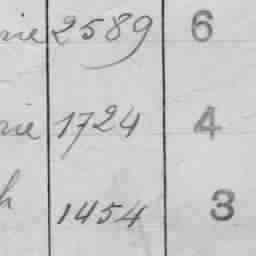 nie 2589 6
nie 1724 4
h 1454 3